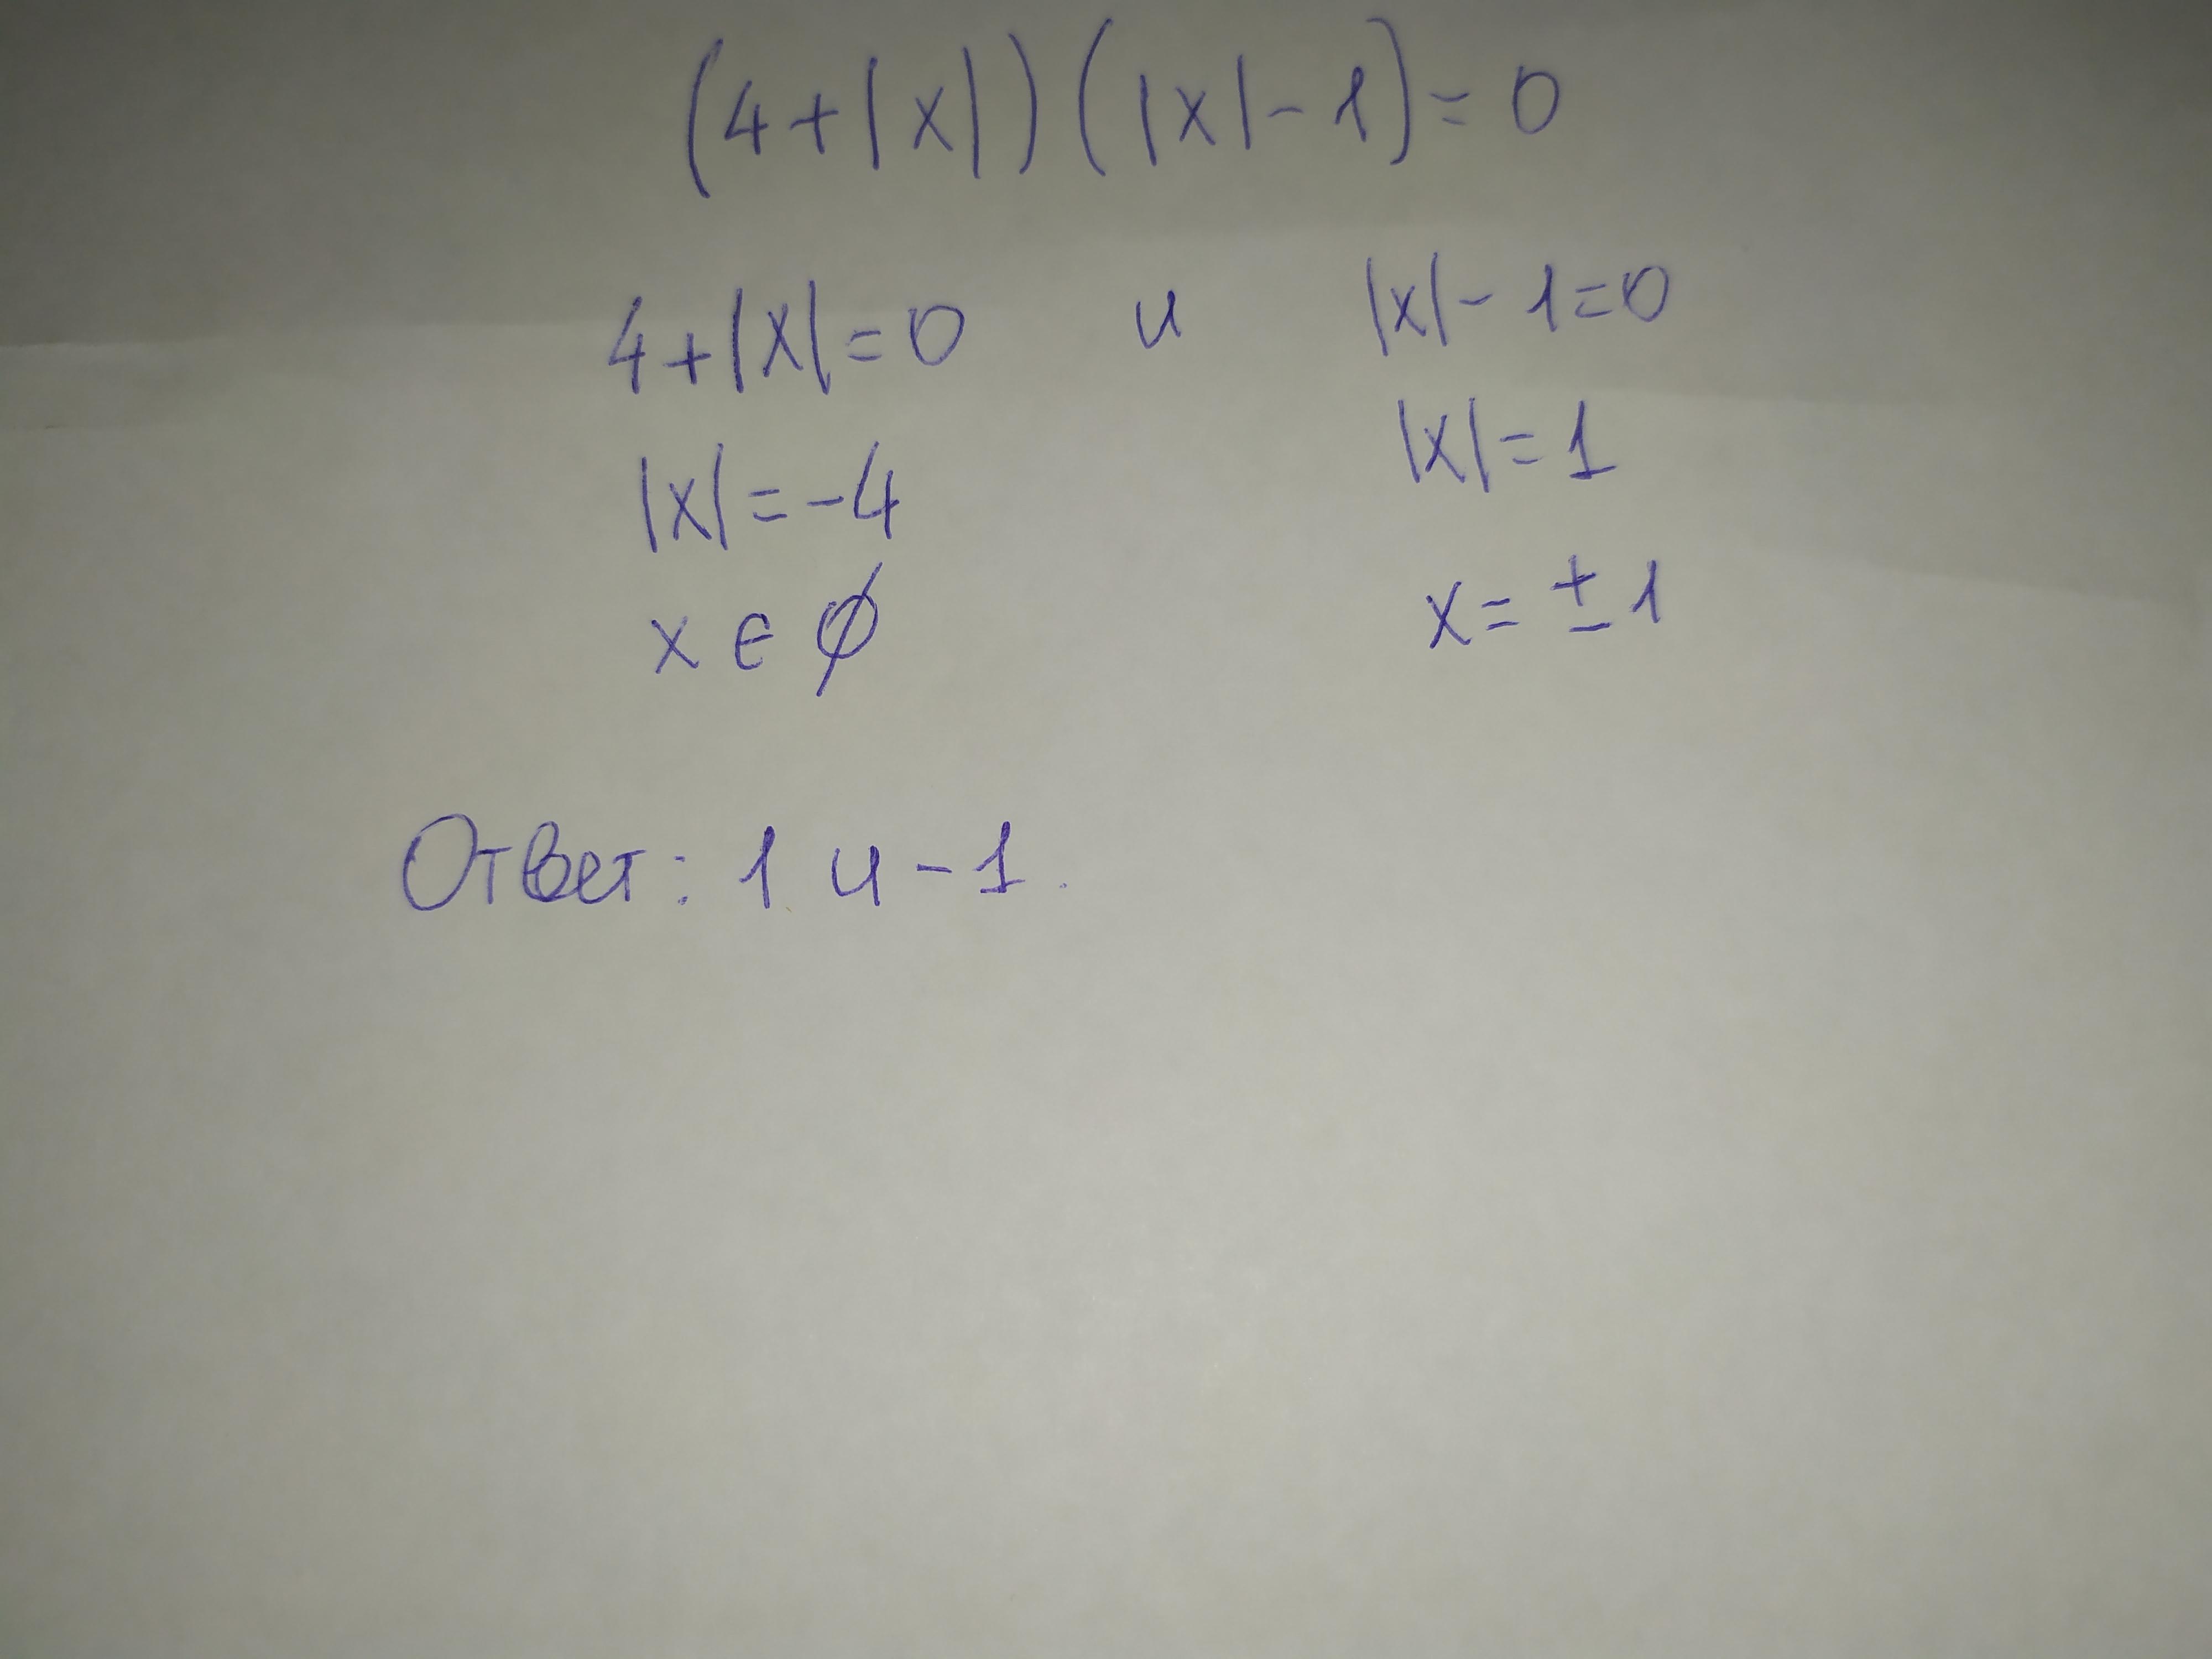 (4+|x|)(|x|-1)=0
4+|x|=0 и |x|-1=0
|x|=-4 |x|=1
x ∈ ∅ x=±1
Ответ: 1 и -1.